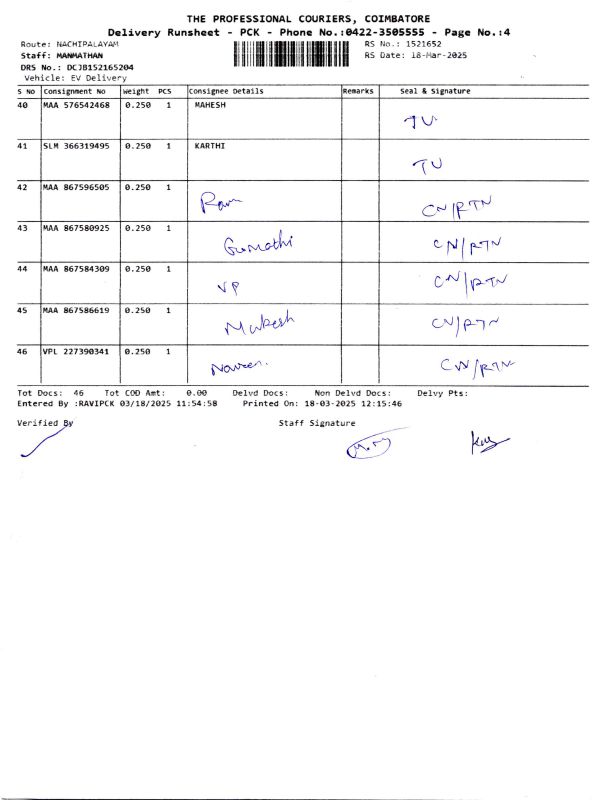 THE PROFESSIONAL COURIERS, COIMBATORE
Delivery Runsheet - PCK - Phone No.:0422-3505555 - Page No.:4
Route: NACHIPALAYAM RS No.: 1521652
Staff: MANMATHAN RS Date: 18-Mar-2025
DRS No.: DCJB152165204
Vehicle: EV Delivery
S No Consignment No Weight PCS Consignee Details Remarks Seal & Signature
40 MAA 576542468 0.250 1 MAHESH
TU
41 SLM 366319495 0.250 1 KARTHI
TU
42 MAA 867596505 0.250 1
Ram CN/RTN
43 MAA 867580925 0.250 1
Gumathi CN/RTN
44 MAA 867584309 0.250 1
VP CN/RTN
45 MAA 867586619 0.250 1
Mukesh CN/RTN
46 VPL 227390341 0.250 1
Naveen. CN/RTN
Tot Docs: 46 Tot COD Amt: 0.00 Delvd Docs: Non Delvd Docs: Delvy Pts:
Entered By :RAVIPCK 03/18/2025 11:54:58 Printed On: 18-03-2025 12:15:46
Verified By Staff Signature